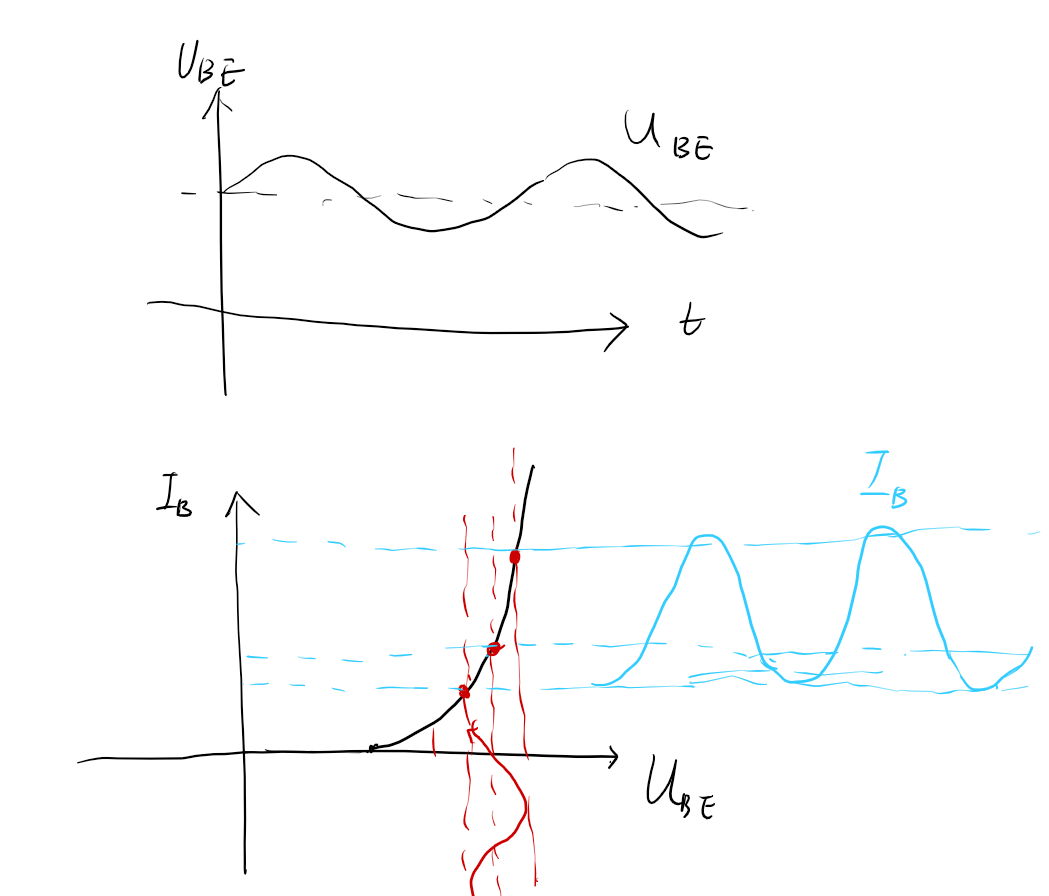 U_BE
U_BE
t
I_B
I_B
U_BE